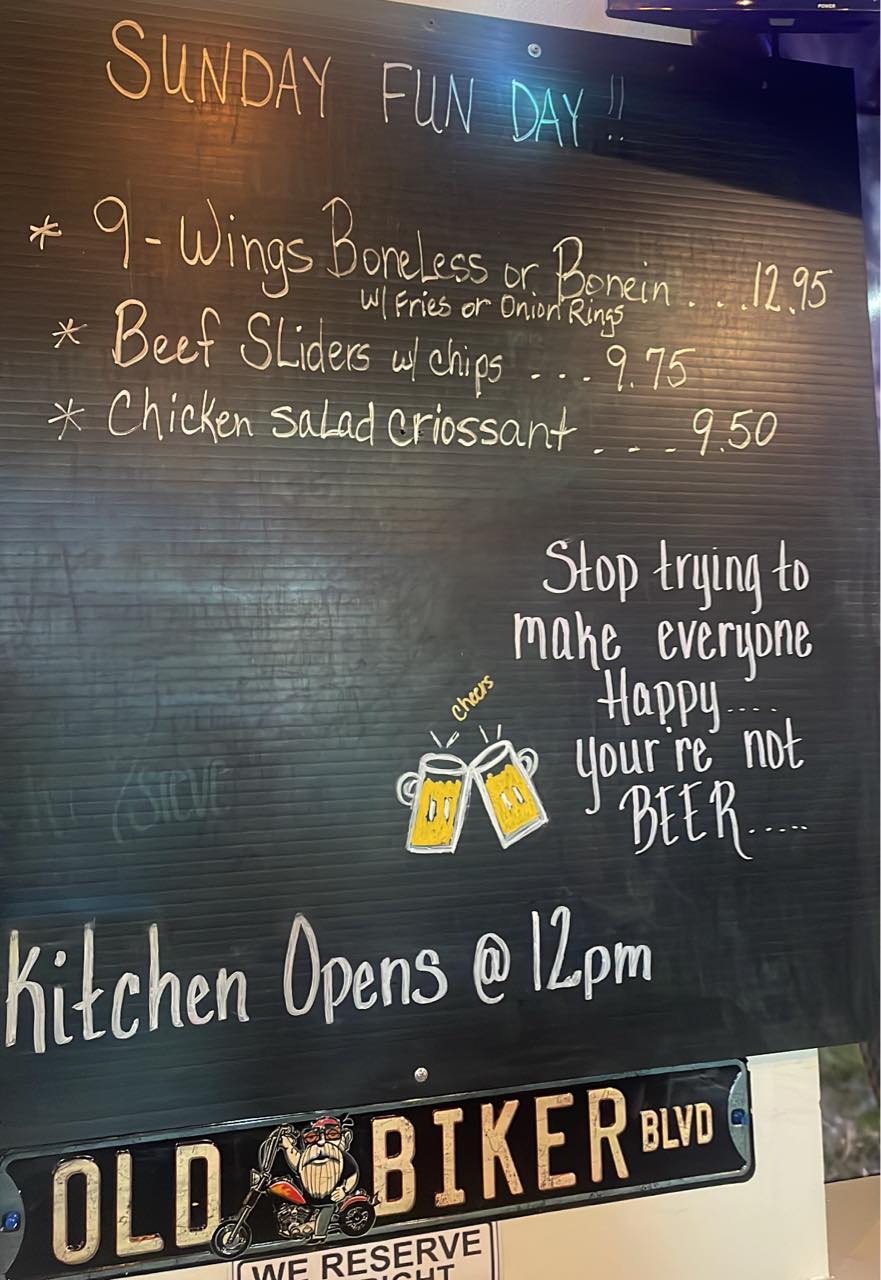 POWER
SUNDAY FUN DAY!!
* 9-Wings Boneless or Bonein . . . 12.95
w/ Fries or Onion Rings
* Beef Sliders w/ chips . . . 9.75
* Chicken salad criossant . . . 9.50
Stop trying to
make everyone
Happy....
your're not
BEER.....
cheers
Kitchen Opens @ 12pm
OLD BIKER BLVD
WE RESERVE